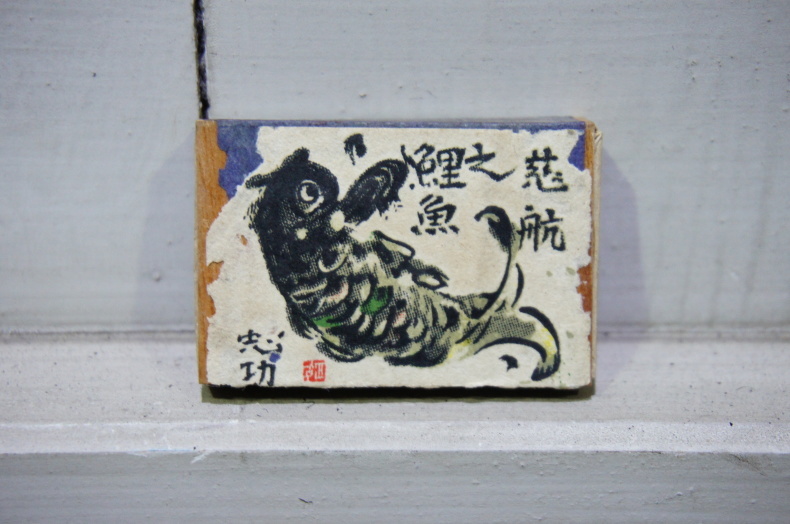 慈航
之鯉魚
忠功